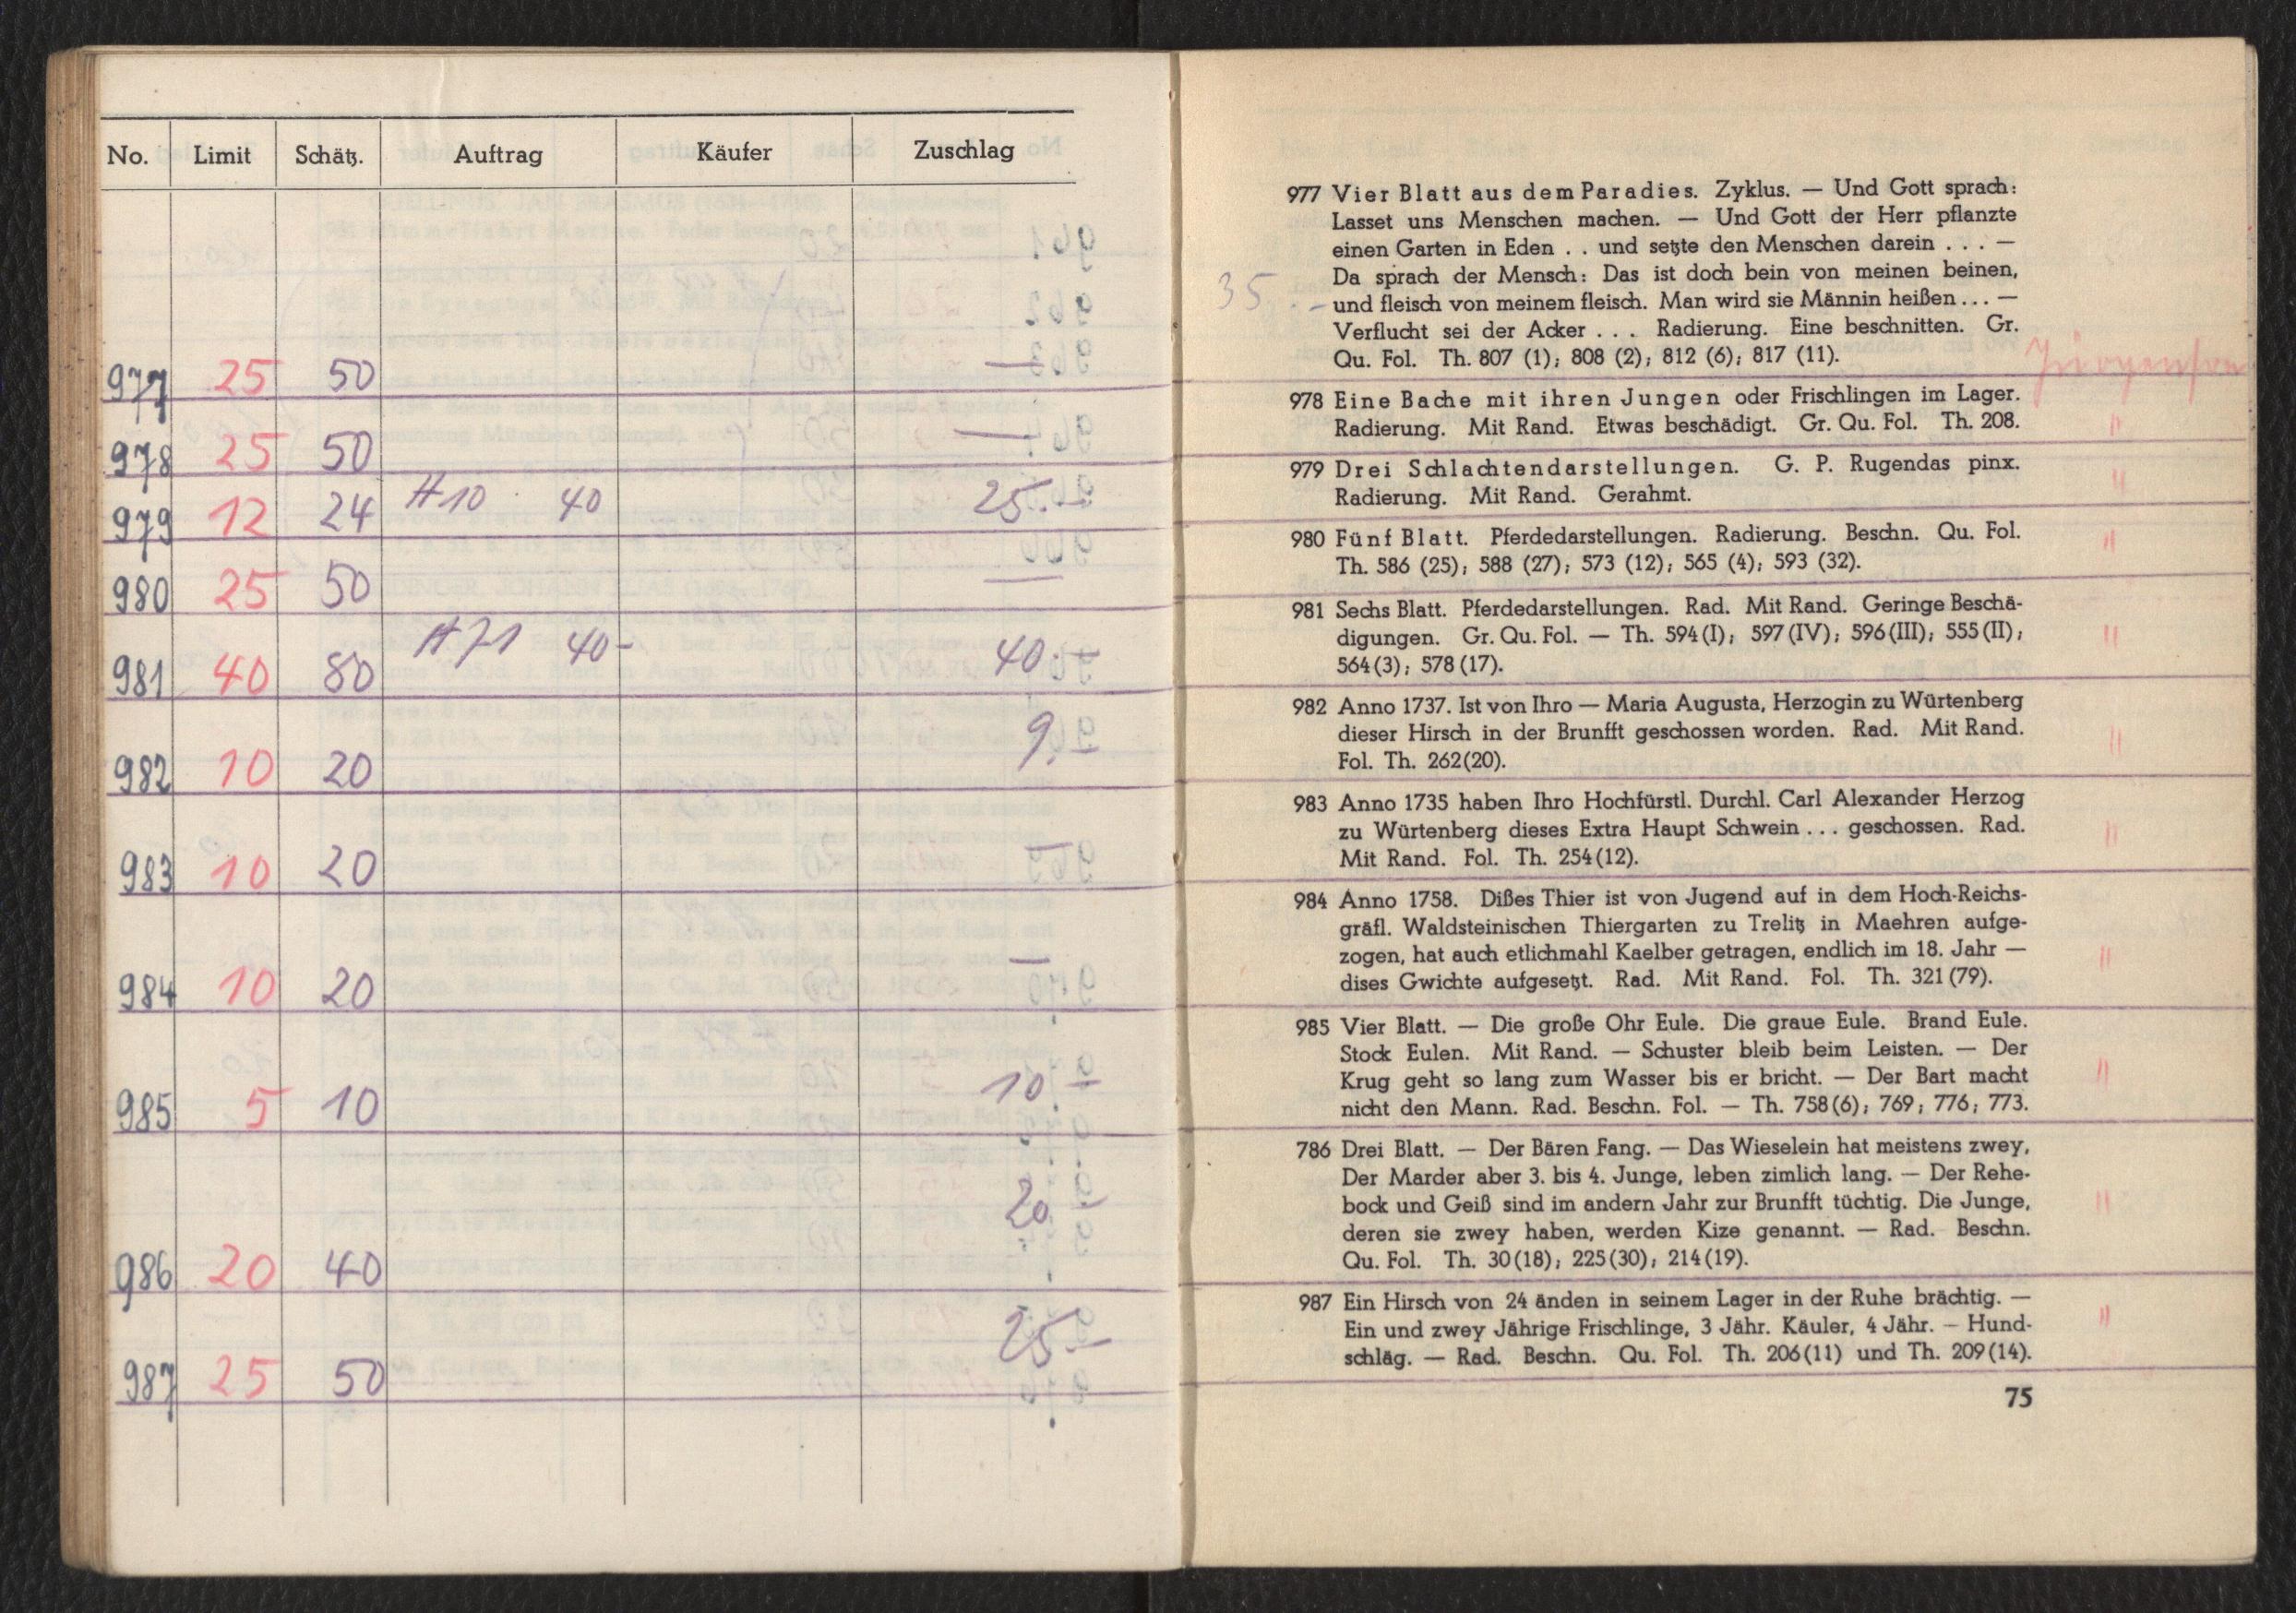 No. Limit Schätz. Auftrag Käufer Zuschlag
977 25 50 —
978 25 50 —
979 12 24 #10 40 25.-
980 25 50 —
981 40 80 #71 40- 40.-
982 10 20 9.-
983 10 20 —
984 10 20 —
985 5 10 10.-
986 20 40 20.-
987 25 50 25.-
977 Vier Blatt aus dem Paradies. Zyklus. — Und Gott sprach:
Lasset uns Menschen machen. — Und Gott der Herr pflanzte
einen Garten in Eden . . und setzte den Menschen darein . . . —
Da sprach der Mensch: Das ist doch bein von meinen beinen,
35.-
und fleisch von meinem fleisch. Man wird sie Männin heißen . . . —
Verflucht sei der Acker . . . Radierung. Eine beschnitten. Gr.
Qu. Fol. Th. 807 (1); 808 (2); 812 (6); 817 (11).
978 Eine Bache mit ihren Jungen oder Frischlingen im Lager.
Radierung. Mit Rand. Etwas beschädigt. Gr. Qu. Fol. Th. 208. "
979 Drei Schlachtendarstellungen. G. P. Rugendas pinx.
Radierung. Mit Rand. Gerahmt. "
980 Fünf Blatt. Pferdedarstellungen. Radierung. Beschn. Qu. Fol. "
Th. 586 (25); 588 (27); 573 (12); 565 (4); 593 (32).
981 Sechs Blatt. Pferdedarstellungen. Rad. Mit Rand. Geringe Beschä-
digungen. Gr. Qu. Fol. — Th. 594 (I); 597 (IV); 596 (III); 555 (II); "
564 (3); 578 (17).
982 Anno 1737. Ist von Ihro — Maria Augusta, Herzogin zu Würtenberg
dieser Hirsch in der Brunfft geschossen worden. Rad. Mit Rand. "
Fol. Th. 262 (20).
983 Anno 1735 haben Ihro Hochfürstl. Durchl. Carl Alexander Herzog
zu Würtenberg dieses Extra Haupt Schwein . . . geschossen. Rad. "
Mit Rand. Fol. Th. 254 (12).
984 Anno 1758. Dißes Thier ist von Jugend auf in dem Hoch-Reichs-
gräfl. Waldsteinischen Thiergarten zu Trelitz in Maehren aufge-
zogen, hat auch etlichmahl Kaelber getragen, endlich im 18. Jahr — "
dises Gwichte aufgesetzt. Rad. Mit Rand. Fol. Th. 321 (79).
985 Vier Blatt. — Die große Ohr Eule. Die graue Eule. Brand Eule.
Stock Eulen. Mit Rand. — Schuster bleib beim Leisten. — Der
Krug geht so lang zum Wasser bis er bricht. — Der Bart macht "
nicht den Mann. Rad. Beschn. Fol. — Th. 758 (6); 769; 776; 773.
786 Drei Blatt. — Der Bären Fang. — Das Wieselein hat meistens zwey,
Der Marder aber 3. bis 4. Junge, leben zimlich lang. — Der Rehe-
bock und Geiß sind im andern Jahr zur Brunfft tüchtig. Die Junge, "
deren sie zwey haben, werden Kize genannt. — Rad. Beschn.
Qu. Fol. Th. 30 (18); 225 (30); 214 (19).
987 Ein Hirsch von 24 änden in seinem Lager in der Ruhe brächtig. — "
Ein und zwey Jährige Frischlinge, 3 Jähr. Käuler, 4 Jähr. – Hund-
schläg. — Rad. Beschn. Qu. Fol. Th. 206 (11) und Th. 209 (14).
75